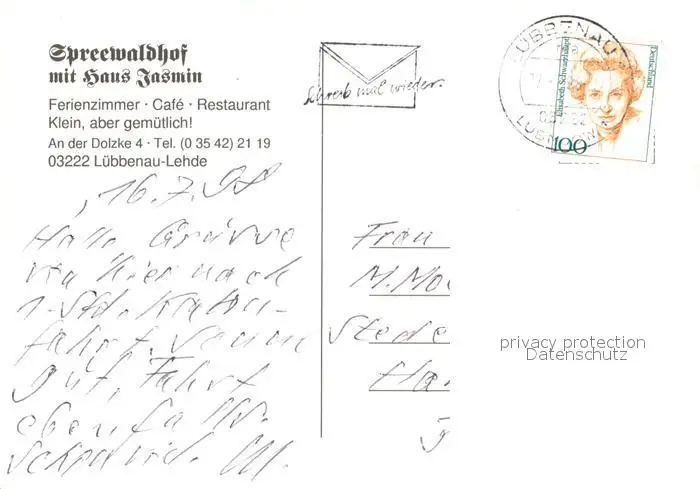 Spreewaldhof
mit Haus Jasmin
Ferienzimmer · Café · Restaurant
Klein, aber gemütlich!
An der Dolzke 4 · Tel. (0 35 42) 21 19
03222 Lübbenau-Lehde
Schreib mal wieder.
LÜBBENAU
Elisabeth Schwarzhaupt
Deutschland
100
16.7.98
Hallo Grüsse
von hier nach
1-Std. Kahn-
fahrt.
gut, Fahrt
ebenfalls.
M.
Frau
M. Mo
Stede
Ha
privacy protection
Datenschutz